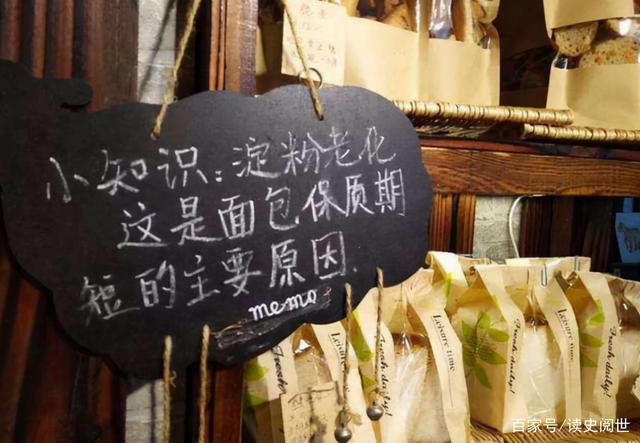 小知识:淀粉老化
这是面包保质期
短的主要原因.
memo
Leisure time
Fresh daily!
Leisure time
Fresh daily!
Fresh daily!
百家号/读史阅世